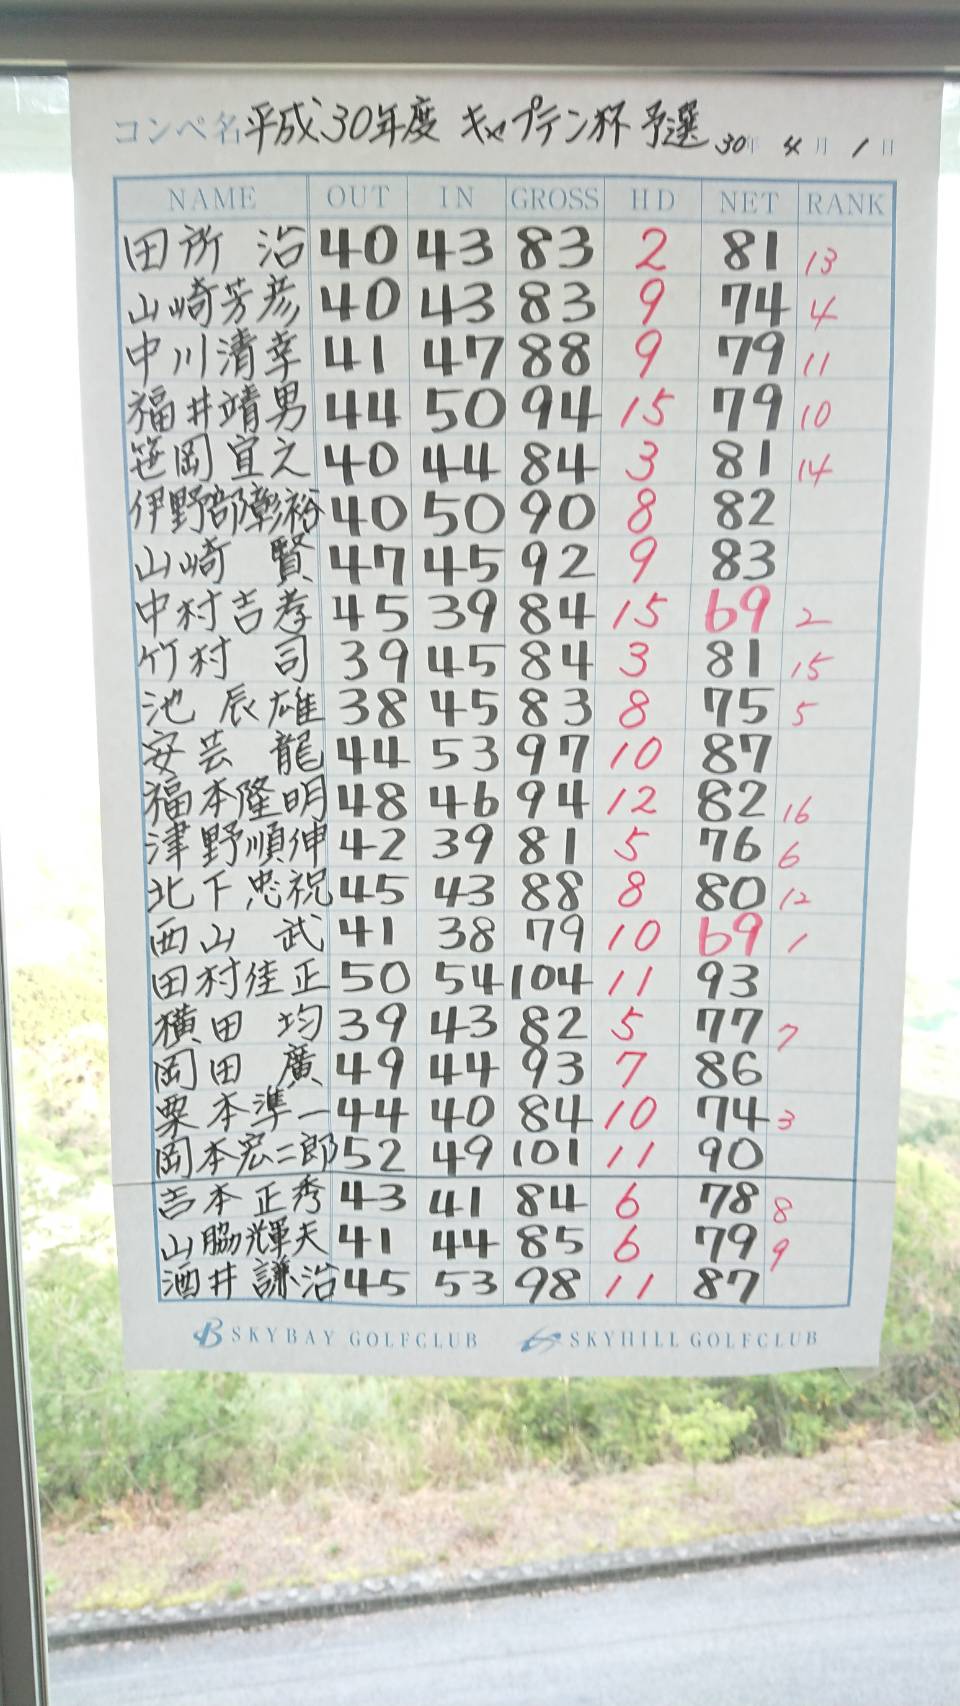 コンペ名 平成30年度 キャプテン杯 予選 30年 4月 1日
NAME OUT IN GROSS HD NET RANK
田所 治 40 43 83 2 81 13
山崎芳彦 40 43 83 9 74 4
中川清幸 41 47 88 9 79 11
福井靖男 44 50 94 15 79 10
笹岡宜之 40 44 84 3 81 14
伊野部彰裕 40 50 90 8 82
山崎 賢 47 45 92 9 83
中村吉孝 45 39 84 15 69 2
竹村 司 39 45 84 3 81 15
池 辰雄 38 45 83 8 75 5
安芸 龍 44 53 97 10 87
福本隆明 48 46 94 12 82 16
津野順伸 42 39 81 5 76 6
北下忠祝 45 43 88 8 80 12
西山 武 41 38 79 10 69 1
田村佳正 50 54 104 11 93
横田 均 39 43 82 5 77 7
岡田 廣 49 44 93 7 86
栗本準一 44 40 84 10 74 3
岡本宏二郎 52 49 101 11 90
吉本正秀 43 41 84 6 78 8
山脇輝夫 41 44 85 6 79 9
酒井謙治 45 53 98 11 87
SKYBAY GOLFCLUB SKYHILL GOLFCLUB